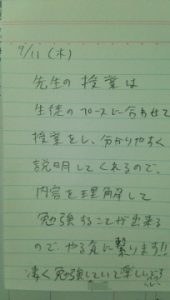 9/11 (木)
先生の授業は
生徒のペースに合わせて
授業をし、分かりやすく
説明してくれるので、
内容を理解して
勉強することが出来る
ので、やる気に繋ります!!
凄く勉強していて楽しい